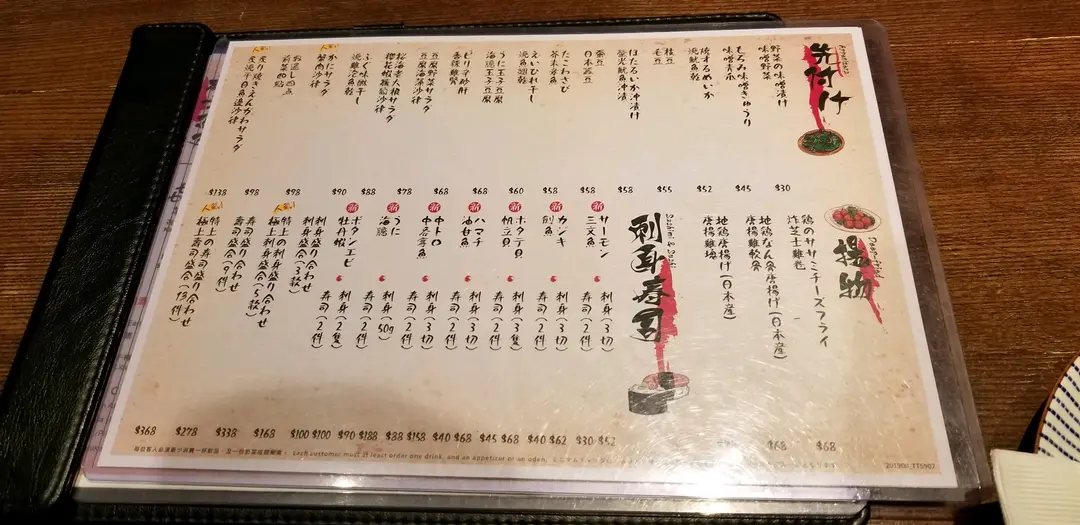 Appetizer
先付け
野菜の味噌漬け
味噌野菜
$30
もろみ味噌きゅうり
味噌青瓜
$45
焼するめいか
燒魷魚乾
$52
枝豆
毛豆
$55
ほたるいか沖漬け
螢光魷魚沖漬
$58
日本蠶豆
$58
たこわさび
芥末章魚
$58
えいひれ干し
燒魚翅乾
$60
うに玉子豆腐
海膽玉子豆腐
$68
ピリ辛砂肝
$68
豆腐野菜サラダ
豆腐海藻沙律
$78
桜海老大根サラダ
櫻花蝦蘿蔔沙律
$88
ふぐ味醂干し
燒雞泡魚乾
$90
人気!
かにサラダ
蟹肉沙律
$98
お通し四点
前菜四點
$98
人気!
炙り焼きえんがわサラダ
$138
Deep-fried
揚物
鶏のササミチーズフライ
炸芝士雞卷
$68
地鶏なん骨唐揚げ(日本産)
唐揚雞軟骨
$68
地鶏唐揚げ(日本産)
唐揚雞塊
Sashimi & Sushi
刺身寿司
サーモン
三文魚
刺身(3切)
$52
寿司(2件)
$30
カンキ
劍魚
刺身(3切)
$62
寿司(2件)
$40
ホタテ貝
帆立貝
刺身(3隻)
$68
寿司(2件)
$45
ハマチ
油甘魚
刺身(3切)
$68
寿司(2件)
$40
中トロ
中吞拿魚
刺身(3切)
$158
寿司(2件)
$88
うに
海膽
刺身(50g)
$188
寿司(2件)
$90
ボタンエビ
牡丹蝦
刺身(2隻)
$100
寿司(2件)
$100
刺身盛り合わせ
刺身盛合(3款)
$168
人気!
特上の刺身盛り合わせ
極上刺身盛合(5款)
$338
寿司盛り合わせ
寿司盛合(9件)
$278
人気!
特上の寿司盛り合わせ
極上寿司盛合(13件)
$368
Each customer must at least order one drink, and an appetizer or an oden.